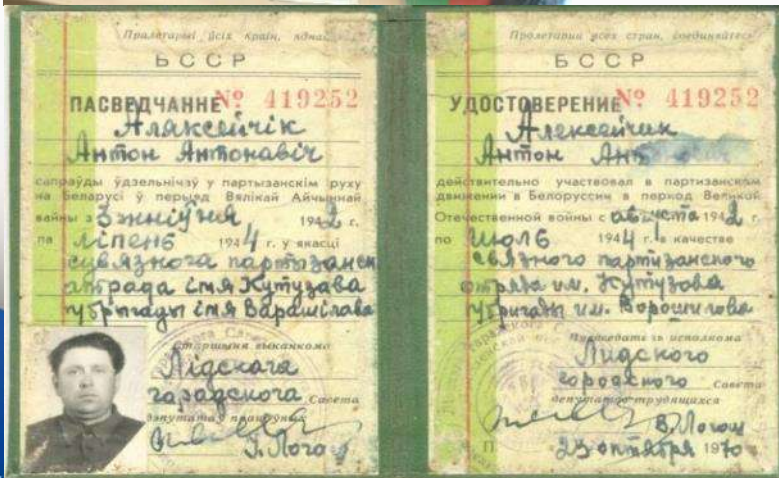 Пралетарыі ўсіх краін,
БССР
ПАСВЕДЧАННЕ № 419252
Аляксейчік
Антон Антонавіч
сапраўды ўдзельнічаў у партызанскім руху
на Беларусі ў перыяд Вялікай Айчыннай
вайны з жніўня 1942 г.
па ліпень 1944 г. у якасці
сувязнога партызанск
атрада імя Кутузава
брыгады імя Варашілава
Старшыня выканкома
Лідскага
гарадскога Савета
дэпутатаў працоўных
Пролетарии всех стран, соединяйтесь
БССР
УДОСТОВЕРЕНИЕ № 419252
Алексейчик
Антон Ант
действительно участвовал в партизанском
движении в Белоруссии в период Великой
Отечественной войны с августа 1942 г.
по июль 1944 г. в качестве
связного партизанского
отряда им. Кутузова
бригады им. Ворошилова
Председатель исполкома
Лидского
городского Совета
депутатов трудящихся
23 октября 1970